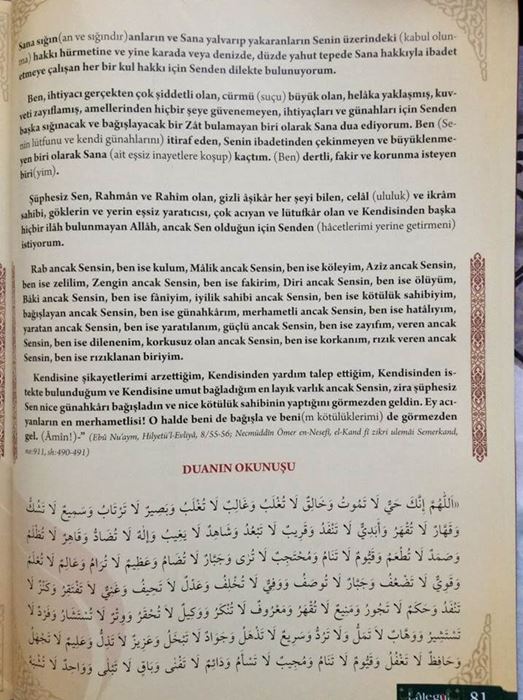 Sana sığın(an ve sığındır)anların ve Sana yalvarıp yakaranların Senin üzerindeki (kabul olun-
ma) hakkı hürmetine ve yine karada veya denizde, düzde yahut tepede Sana hakkıyla ibadet
etmeye çalışan her bir kul hakkı için Senden dilekte bulunuyorum.
Ben, ihtiyacı gerçekten çok şiddetli olan, cürmü (suçu) büyük olan, helâka yaklaşmış, kuv-
veti zayıflamış, amellerinden hiçbir şeye güvenemeyen, ihtiyaçları ve günahları için Senden
başka sığınacak ve bağışlayacak bir Zât bulamayan biri olarak Sana dua ediyorum. Ben (Se-
nin lütfunu ve kendi günahlarını) itiraf eden, Senin ibadetinden çekinmeyen ve büyüklenme-
yen biri olarak Sana (ait eşsiz inayetlere koşup) kaçtım. (Ben) dertli, fakir ve korunma isteyen
biri(yim).
Şüphesiz Sen, Rahmân ve Rahîm olan, gizli âşikâr her şeyi bilen, celâl (ululuk) ve ikrâm
sahibi, göklerin ve yerin eşsiz yaratıcısı, çok acıyan ve lütufkâr olan ve Kendisinden başka
hiçbir ilâh bulunmayan Allâh, ancak Sen olduğun için Senden (hâcetlerimi yerine getirmeni)
istiyorum.
Rab ancak Sensin, ben ise kulum, Mâlik ancak Sensin, ben ise köleyim, Azîz ancak Sensin,
ben ise zelilim, Zengin ancak Sensin, ben ise fakirim, Diri ancak Sensin, ben ise ölüyüm,
Bâki ancak Sensin, ben ise fâniyim, iyilik sahibi ancak Sensin, ben ise kötülük sahibiyim,
bağışlayan ancak Sensin, ben ise günahkârım, merhametli ancak Sensin, ben ise hatâlıyım,
yaratan ancak Sensin, ben ise yaratılanım, güçlü ancak Sensin, ben ise zayıfım, veren ancak
Sensin, ben ise dilenenim, korkusuz olan ancak Sensin, ben ise korkanım, rızık veren ancak
Sensin, ben ise rızıklanan biriyim.
Kendisine şikayetlerimi arzettiğim, Kendisinden yardım talep ettiğim, Kendisinden is-
tekte bulunduğum ve Kendisine umut bağladığım en layık varlık ancak Sensin, zira şüphesiz
Sen nice günahkârı bağışladın ve nice kötülük sahibinin yaptığını görmezden geldin. Ey acı-
yanların en merhametlisi! O halde beni de bağışla ve beni(m kötülüklerimi) de görmezden
gel. (Âmîn!)-" (Ebû Nu'aym, Hilyetü'l-Evliyâ, 8/55-56; Necmüddîn Ömer en-Nesefî, el-Kand fî zikri ulemâi Semerkand,
no:911, sh:490-491)
DUANIN OKUNUŞU
«اَللّٰهُمَّ إِنَّكَ حَيٌّ لَا تَمُوتُ وَخَالِقٌ لَا تُغْلَبُ وَغَالِبٌ لَا تُغْلَبُ وَبَصِيرٌ لَا تَرْتَابُ وَسَمِيعٌ لَا تَشُكُّ
وَقَهَّارٌ لَا تُقْهَرُ وَأَبَدِيٌّ لَا تَنْفَدُ وَقَرِيبٌ لَا تَبْعُدُ وَشَاهِدٌ لَا يَغِيبُ وَإِلٰهٌ لَا تُضَادُّ وَقَاهِرٌ لَا تُظْلَمُ
وَصَمَدٌ لَا تُطْعَمُ وَقَيُّومٌ لَا تَنَامُ وَمُحْتَجِبٌ لَا تُرٰى وَجَبَّارٌ لَا تُضَامُ وَعَظِيمٌ لَا تُرَامُ وَعَالِمٌ لَا تُعَلَّمُ
وَقَوِيٌّ لَا تَضْعُفُ وَجَبَّارٌ لَا تُوصَفُ وَوَفِيٌّ لَا تُخْلِفُ وَعَدْلٌ لَا تَحِيفُ وَغَنِيٌّ لَا تَفْتَقِرُ وَكَنْزٌ لَا
تَنْفَدُ وَحَكَمٌ لَا تَجُورُ وَمَنِيعٌ لَا تُقْهَرُ وَمَعْرُوفٌ لَا تُنْكَرُ وَوَكِيلٌ لَا تُحْقَرُ وَوِتْرٌ لَا تُسْتَشَارُ وَفَرْدٌ لَا
تَسْتَشِيرُ وَوَهَّابٌ لَا تَمَلُّ وَلَا تَرُدُّ وَسَرِيعٌ لَا تَذْهَلُ وَجَوَادٌ لَا تَبْخَلُ وَعَزِيزٌ لَا تَذِلُّ وَعَلِيمٌ لَا تَجْهَلُ
وَحَافِظٌ لَا تَغْفُلُ وَقَيُّومٌ لَا تَنَامُ وَمُجِيبٌ لَا تَسْأَمُ وَدَائِمٌ لَا تَفْنٰى وَبَاقٍ لَا تَبْلٰى وَوَاحِدٌ لَا تُشْبَهُ
Lâlegül 81